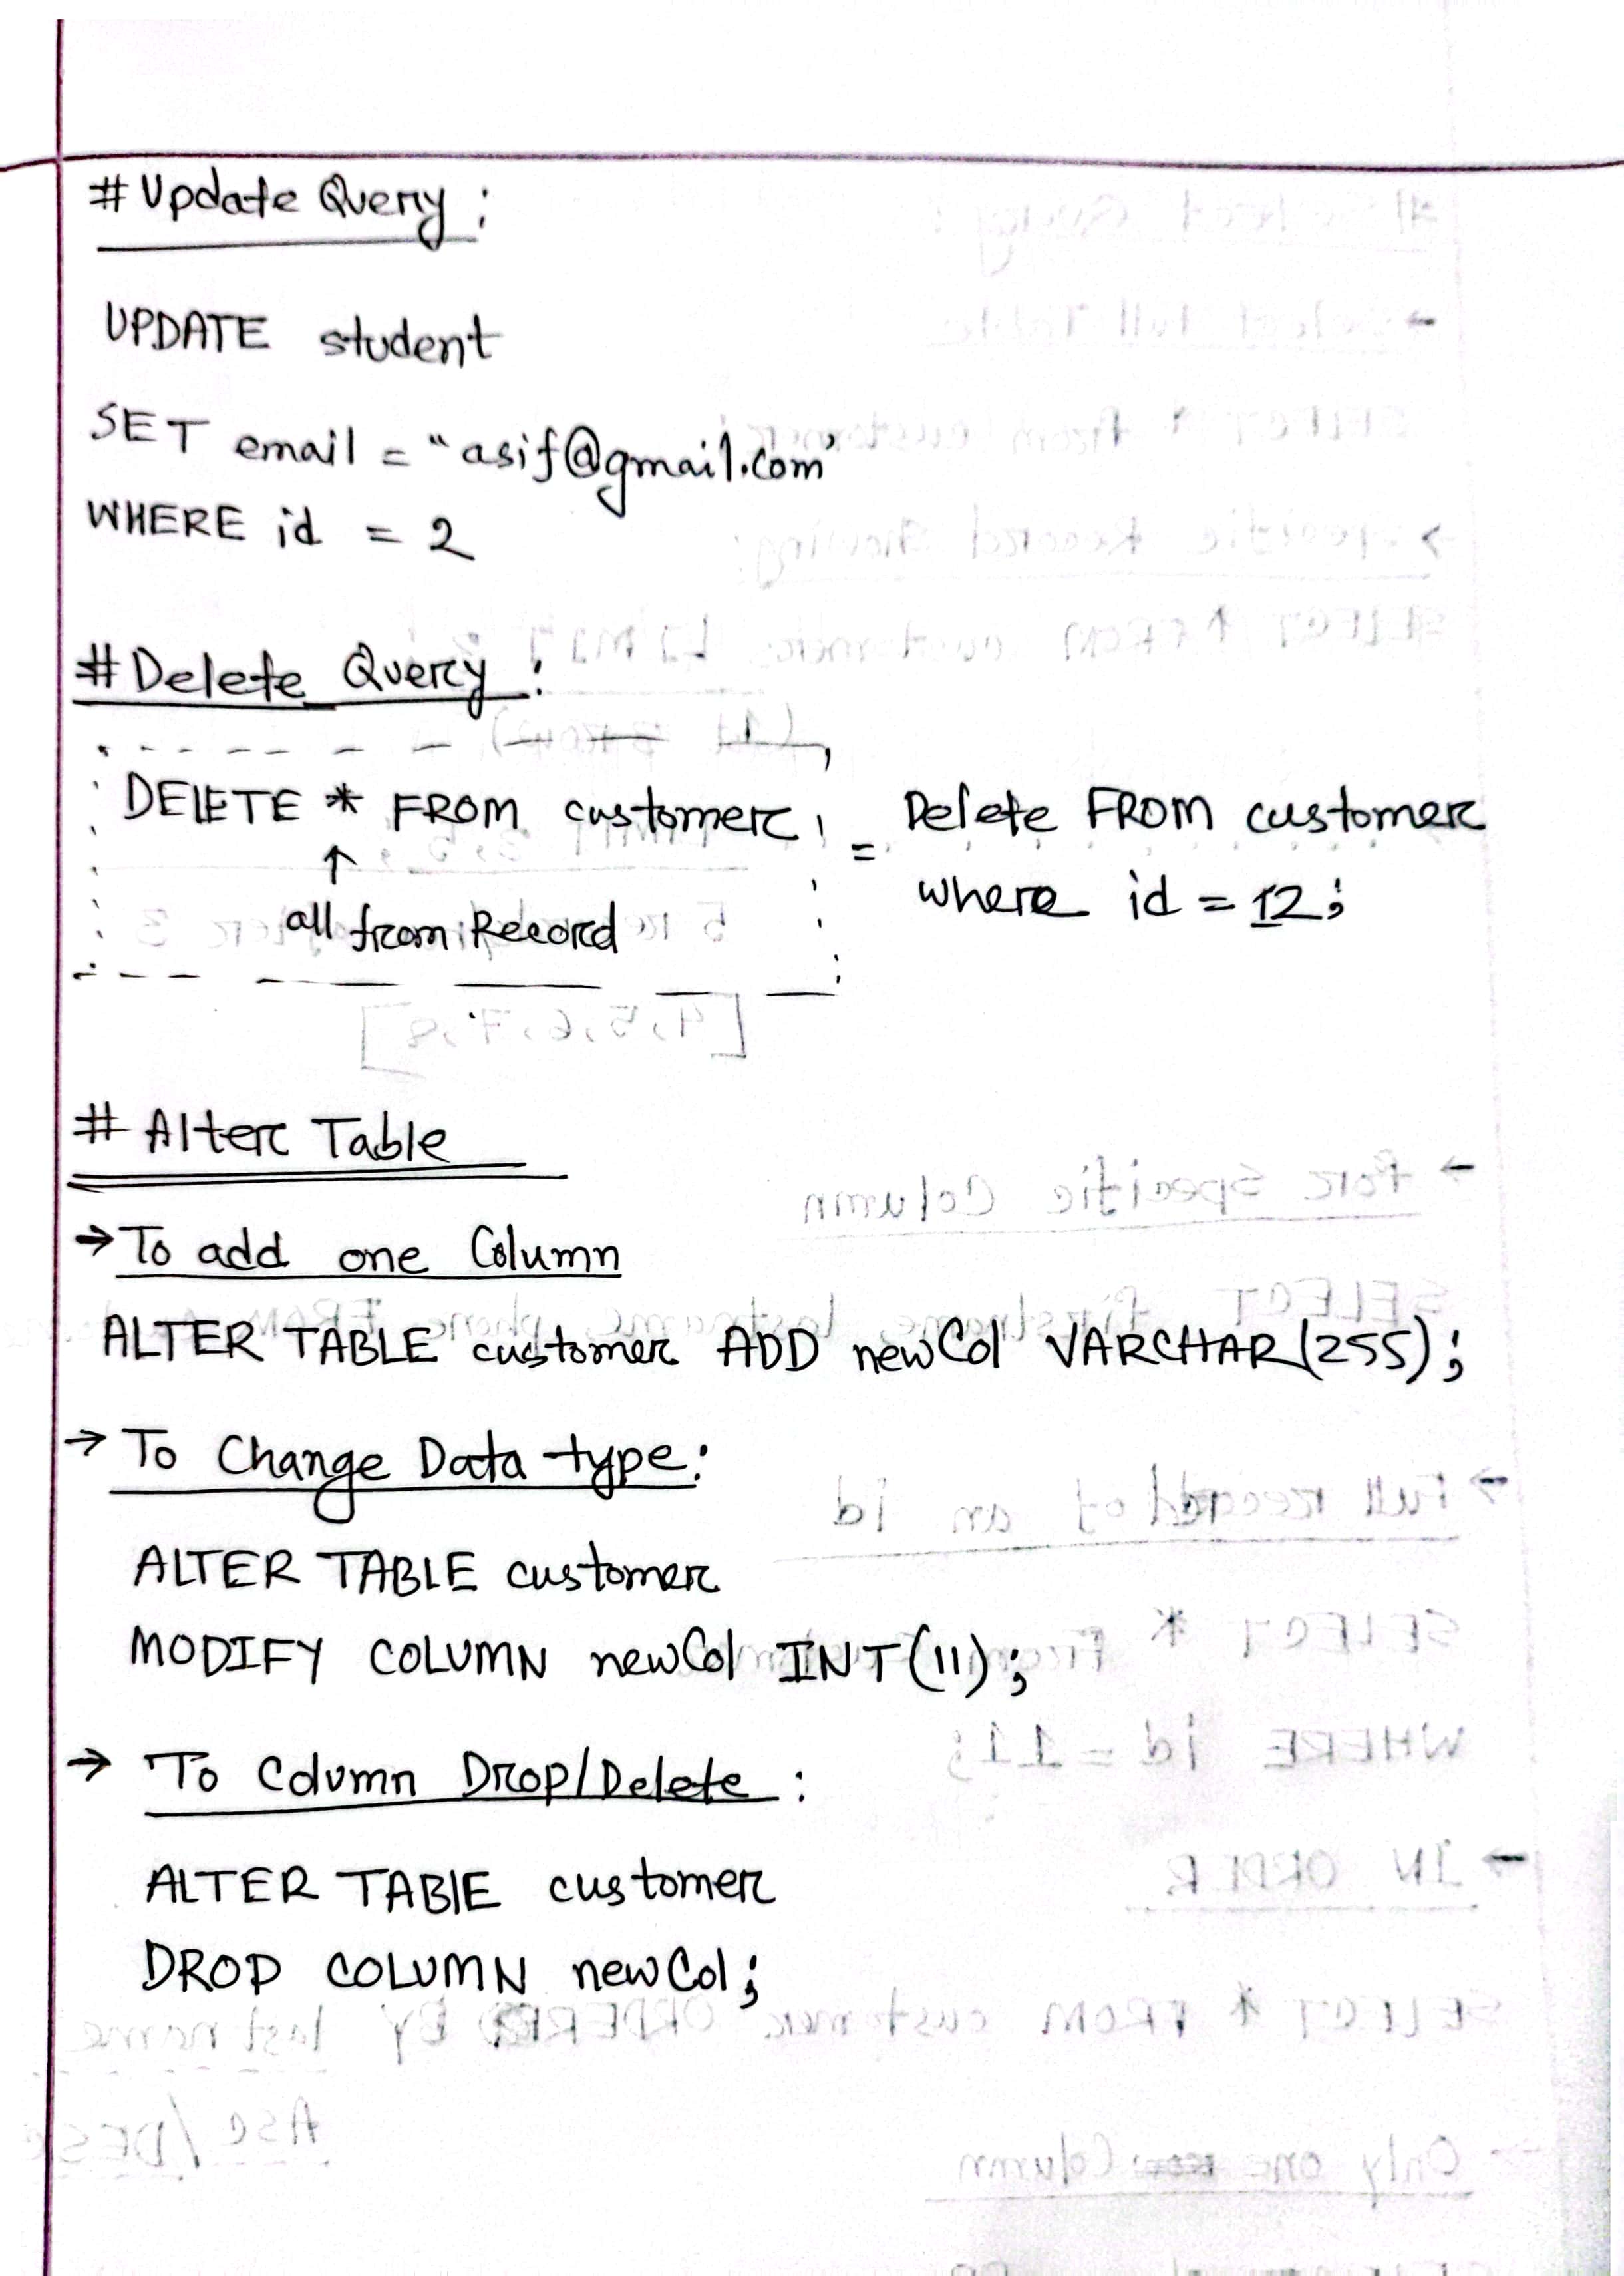 # Update Query :
UPDATE student
SET email = "asif@gmail.com"
WHERE id = 2
# Delete Query :
DELETE * FROM customer
↑
all from Record
= Delete FROM customer
where id = 12;
# Alter Table
→ To add one Column
ALTER TABLE customer ADD newCol VARCHAR(255);
→ To Change Data type:
ALTER TABLE customer
MODIFY COLUMN newCol INT(11);
→ To Column Drop/Delete :
ALTER TABLE customer
DROP COLUMN newCol;